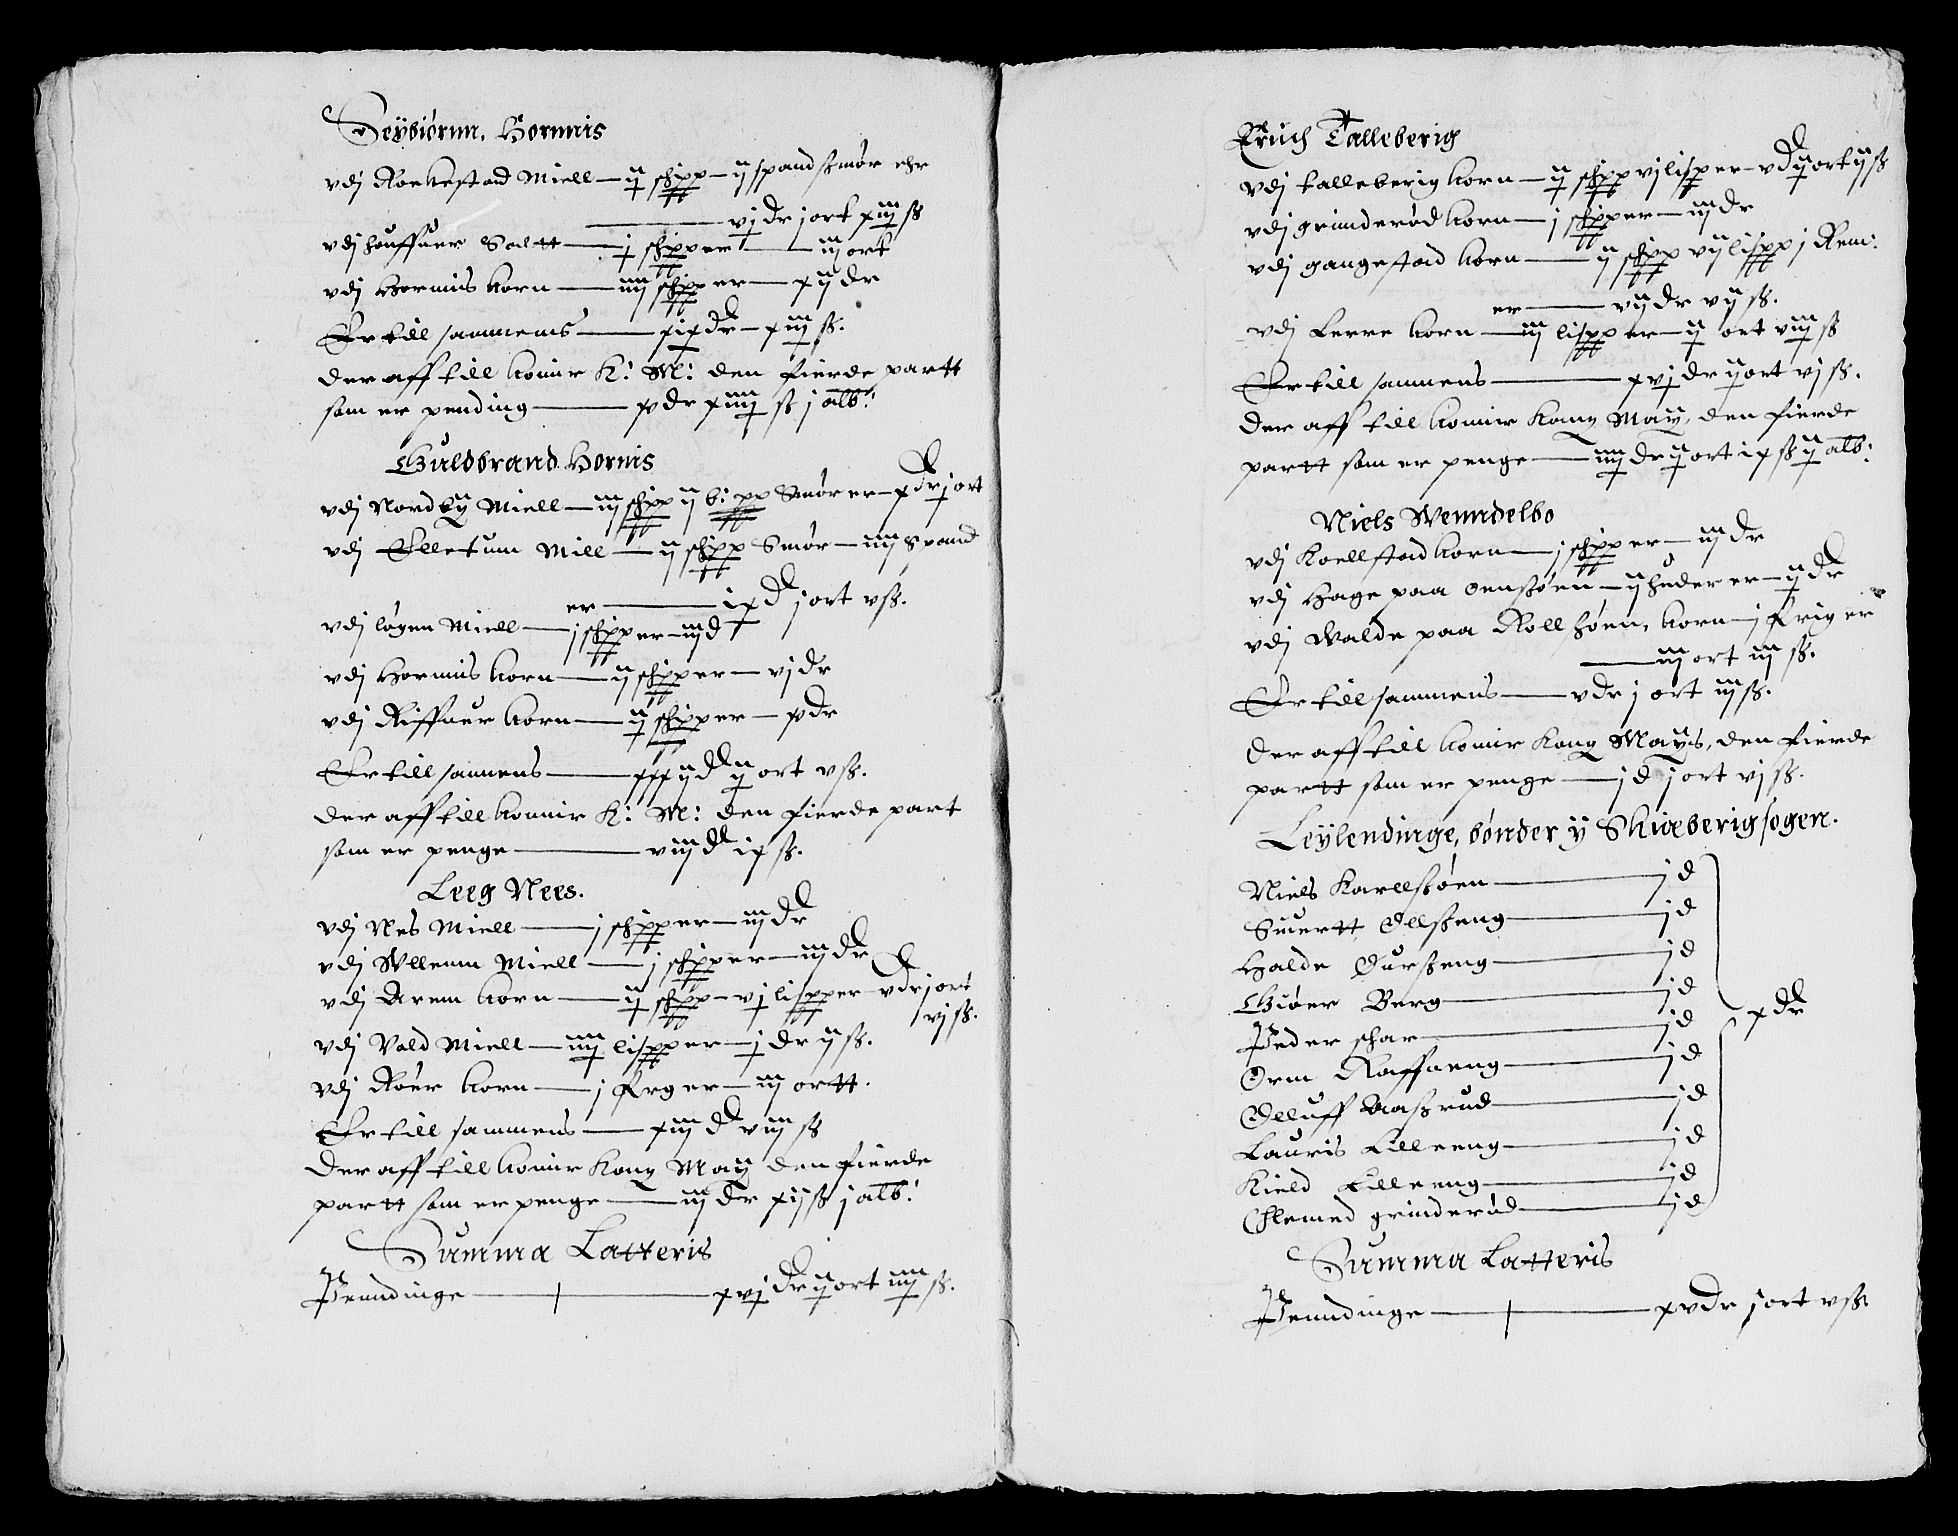 Seÿbiørnn. Hornnis
vdj Rokestad Miell — ij schipp — ij spand smør ehr
— vj dr j ort xiij ß
vdj houffuer Saltt — j schipp er — iij ort
vdj Hornnis korn — iiij schipp er — xij dr
Er till sammens — xix dr — xiij ß.
der aff till komir K: M: den fierde partt
som er pending — iiij ß j alb:
Guldbrand Hornis
vdj Nordbÿ Miell — iij schipp ij b: pp Smør er — x dr j ort
vdj Elletunn Miell — ij schipp Smør — iiij spand
er — ix d j ort v ß.
vdj løgen Miell — j schipp er — iij d
vdj Hornnis korn — ij schipp er — vj dr
vdj Riffuer korn — ij schipp er —
Er till samens — xxxij d ij ort v ß.
der aff till komir K: M: den fierde part
som er penge — viij d ix ß.
Leeg Nees.
vdj Nes Miell — j schipp er — iij dr
vdj Wllerun Miell — j schipp er — iij dr
vdj Arem korn — ij schipp — vj lispp er — v dr j ort
vj ß.
vdj Vold Miell — iiij lispp er — j dr ij ß.
vdj Roer korn — j frg er — iij ortt.
Er till sammens — xiij d viij ß
der aff till komir Kong Maÿ den fierde
partt som er penge — iij dr xij ß j alb:
Summa Latteris
Penndinge — xvj dr ij ort iiij ß.
Eruch Talleberig
vdj talleberig korn — ij schipp vj lisp er — v d ij ort ij ß
vdj grinderød korn — j schipp er — iij dr
vdj gangestad korn — ij schipp vij lispp j Rem:
er — vij dr vij ß.
vdj Lerre korn — iij lispp er — ij ort viij ß
Er till sammens — xvj dr ij ort vj ß.
der aff till komir Kong Maÿ, den fierde
partt som er penge — iiij dr ij ort ix ß ij alb:
Niels Wenndelbo
vdj Koellstad korn — j schipp er — iij dr
vdj Hage paa Onsøen — ij huder er — ij dr
vdj Walde paa Rollsøen, korn — j frig er
— iij ort iij ß.
Er till sammens — v dr j ort iij ß.
der aff till komir Kong Maÿs, den fierde
partt som er penge — j d j ort vj ß.
Leÿlendinge, bønder ÿ Skiæberig sogen.
Niels Karllsøen — j d
Siuertt Ollseng — j d
Halde Durseng — j d
Giøer Berg — j d
Peder schar — j d
x dr
Orm Raffneng — j d
Olluff Aasrud — j d
Lauris Lilleeng — j d
Kield Lilleeng — j d
Clemed grinderød — j d
Summa Latteris
Penndinge — xv dr j ort v ß